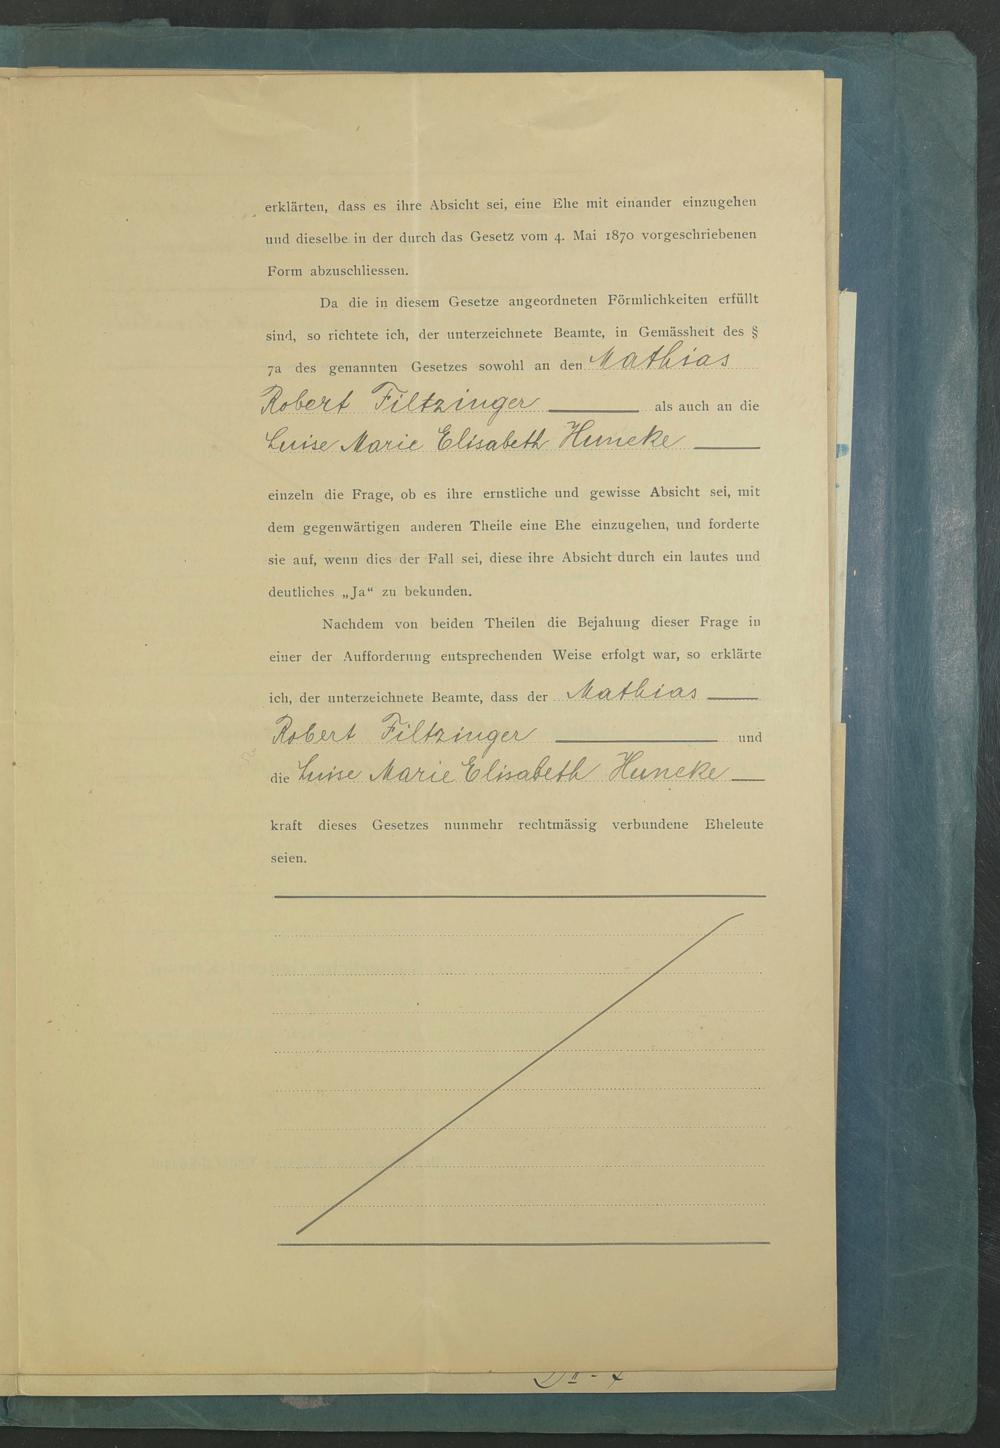 erklärten, dass es ihre Absicht sei, eine Ehe mit einander einzugehen
und dieselbe in der durch das Gesetz vom 4. Mai 1870 vorgeschriebenen
Form abzuschliessen.
Da die in diesem Gesetze angeordneten Förmlichkeiten erfüllt
sind, so richtete ich, der unterzeichnete Beamte, in Gemässheit des §
7a des genannten Gesetzes sowohl an den Mathias
Robert Filtzinger als auch an die
Luise Marie Elisabeth Huneke
einzeln die Frage, ob es ihre ernstliche und gewisse Absicht sei, mit
dem gegenwärtigen anderen Theile eine Ehe einzugehen, und forderte
sie auf, wenn dies der Fall sei, diese ihre Absicht durch ein lautes und
deutliches „Ja“ zu bekunden.
Nachdem von beiden Theilen die Bejahung dieser Frage in
einer der Aufforderung entsprechenden Weise erfolgt war, so erklärte
ich, der unterzeichnete Beamte, dass der Mathias
Robert Filtzinger und
die Luise Marie Elisabeth Huneke
kraft dieses Gesetzes nunmehr rechtmässig verbundene Eheleute
seien.